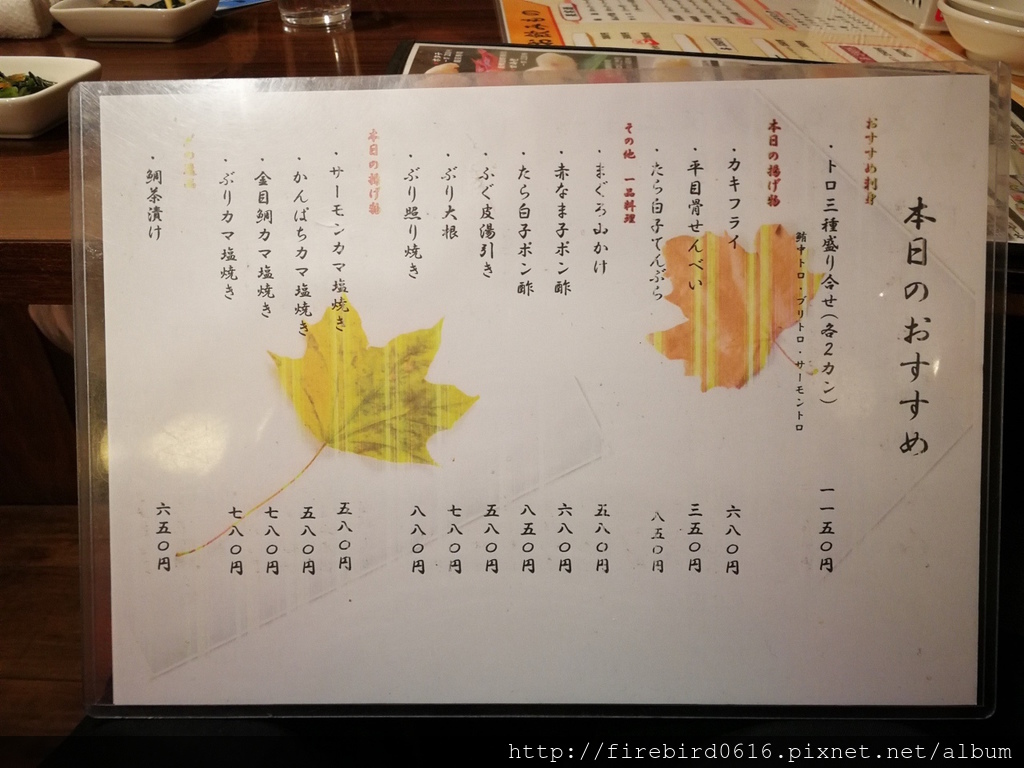 本日のおすすめ
おすすめ刺身
・トロ三種盛り合せ(各2カン) 一一五〇円
鮪中トロ・ブリトロ・サーモントロ
本日の揚げ物
・カキフライ 六八〇円
・平目骨せんべい 三五〇円
・たら白子てんぷら 八五〇円
その他 一品料理
・まぐろ山かけ 五八〇円
・赤なま子ポン酢 六八〇円
・たら白子ポン酢 八五〇円
・ふぐ皮湯引き 五八〇円
・ぶり大根 七八〇円
・ぶり照り焼き 八八〇円
本日の揚げ物
・サーモンカマ塩焼き 五八〇円
・かんぱちカマ塩焼き 五八〇円
・金目鯛カマ塩焼き 七八〇円
・ぶりカマ塩焼き 七八〇円
・鯛茶漬け 六五〇円
http://firebird0616.pixnet.net/album